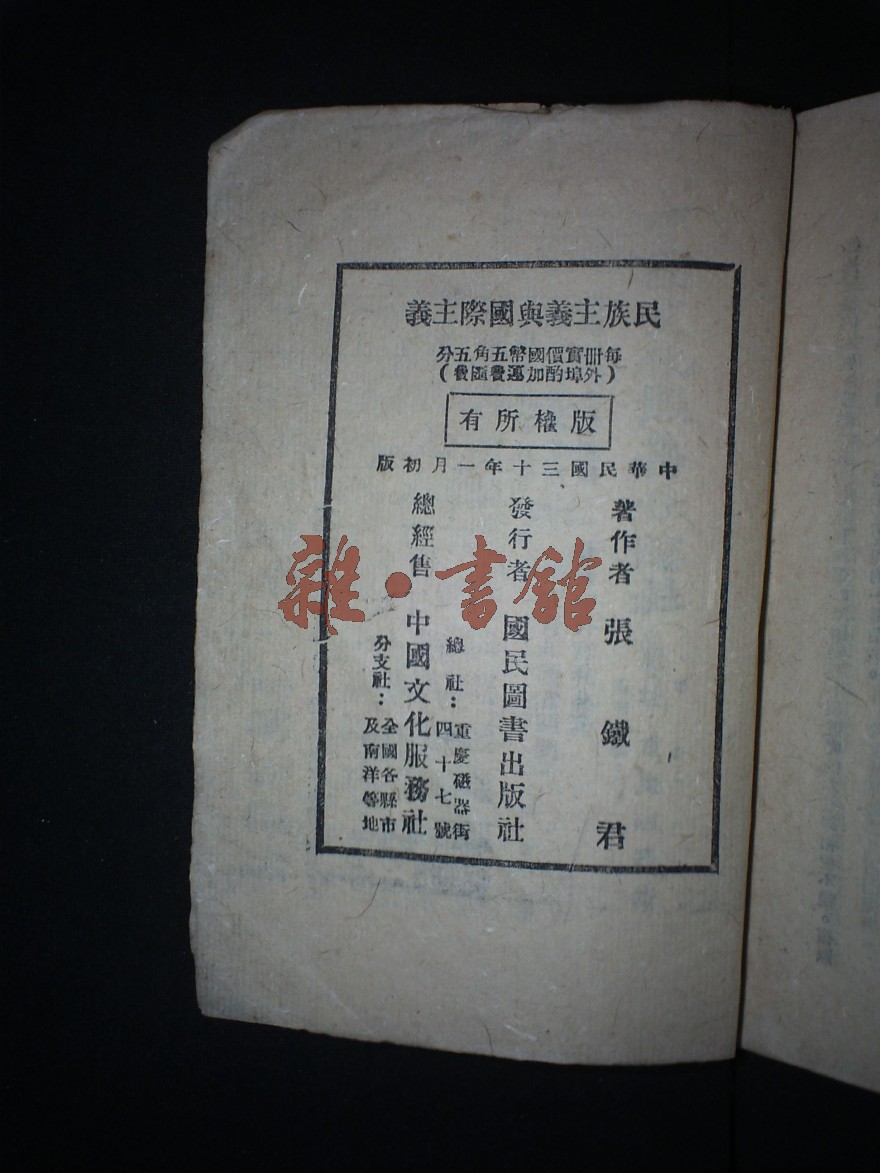 民族主義與國際主義
每冊實價國幣五角五分
(外埠酌加運費匯費)
版權所有
中華民國三十年一月初版
著作者 張鐵君
發行者 國民圖書出版社
總經售 中國文化服務社
總社：重慶磁器街四十七號
分支社：全國各縣市及南洋等地
雜·書館